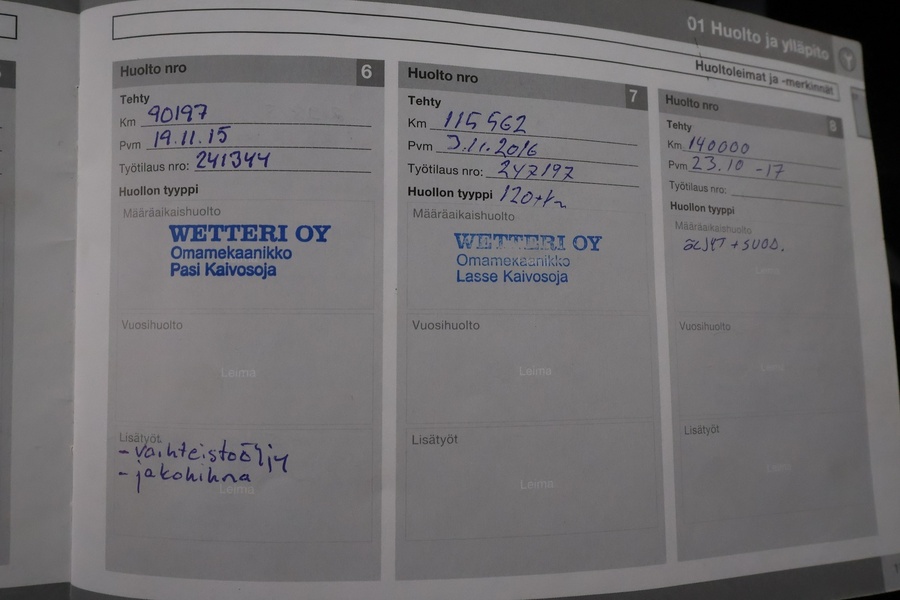 01 Huolto ja ylläpito
Huoltoleimat ja -merkinnät
Huolto nro 6
Tehty
Km 90197
Pvm 19.11.15
Työtilaus nro: 241344
Huollon tyyppi
Määräaikaishuolto
WETTERI OY
Omamekaanikko
Pasi Kaivosoja
Vuosihuolto
Leima
Lisätyöt
- vaihteistoöljy
- jakohihna
Leima
Huolto nro 7
Tehty
Km 115562
Pvm 3.11.2016
Työtilaus nro: 247197
Huollon tyyppi 120tkm
Määräaikaishuolto
WETTERI OY
Omamekaanikko
Lasse Kaivosoja
Vuosihuolto
Leima
Lisätyöt
Leima
Huolto nro 8
Tehty
Km 140000
Pvm 23.10 -17
Työtilaus nro:
Huollon tyyppi
Määräaikaishuolto
öljyt + suod.
Leima
Vuosihuolto
Leima
Lisätyöt
Leima